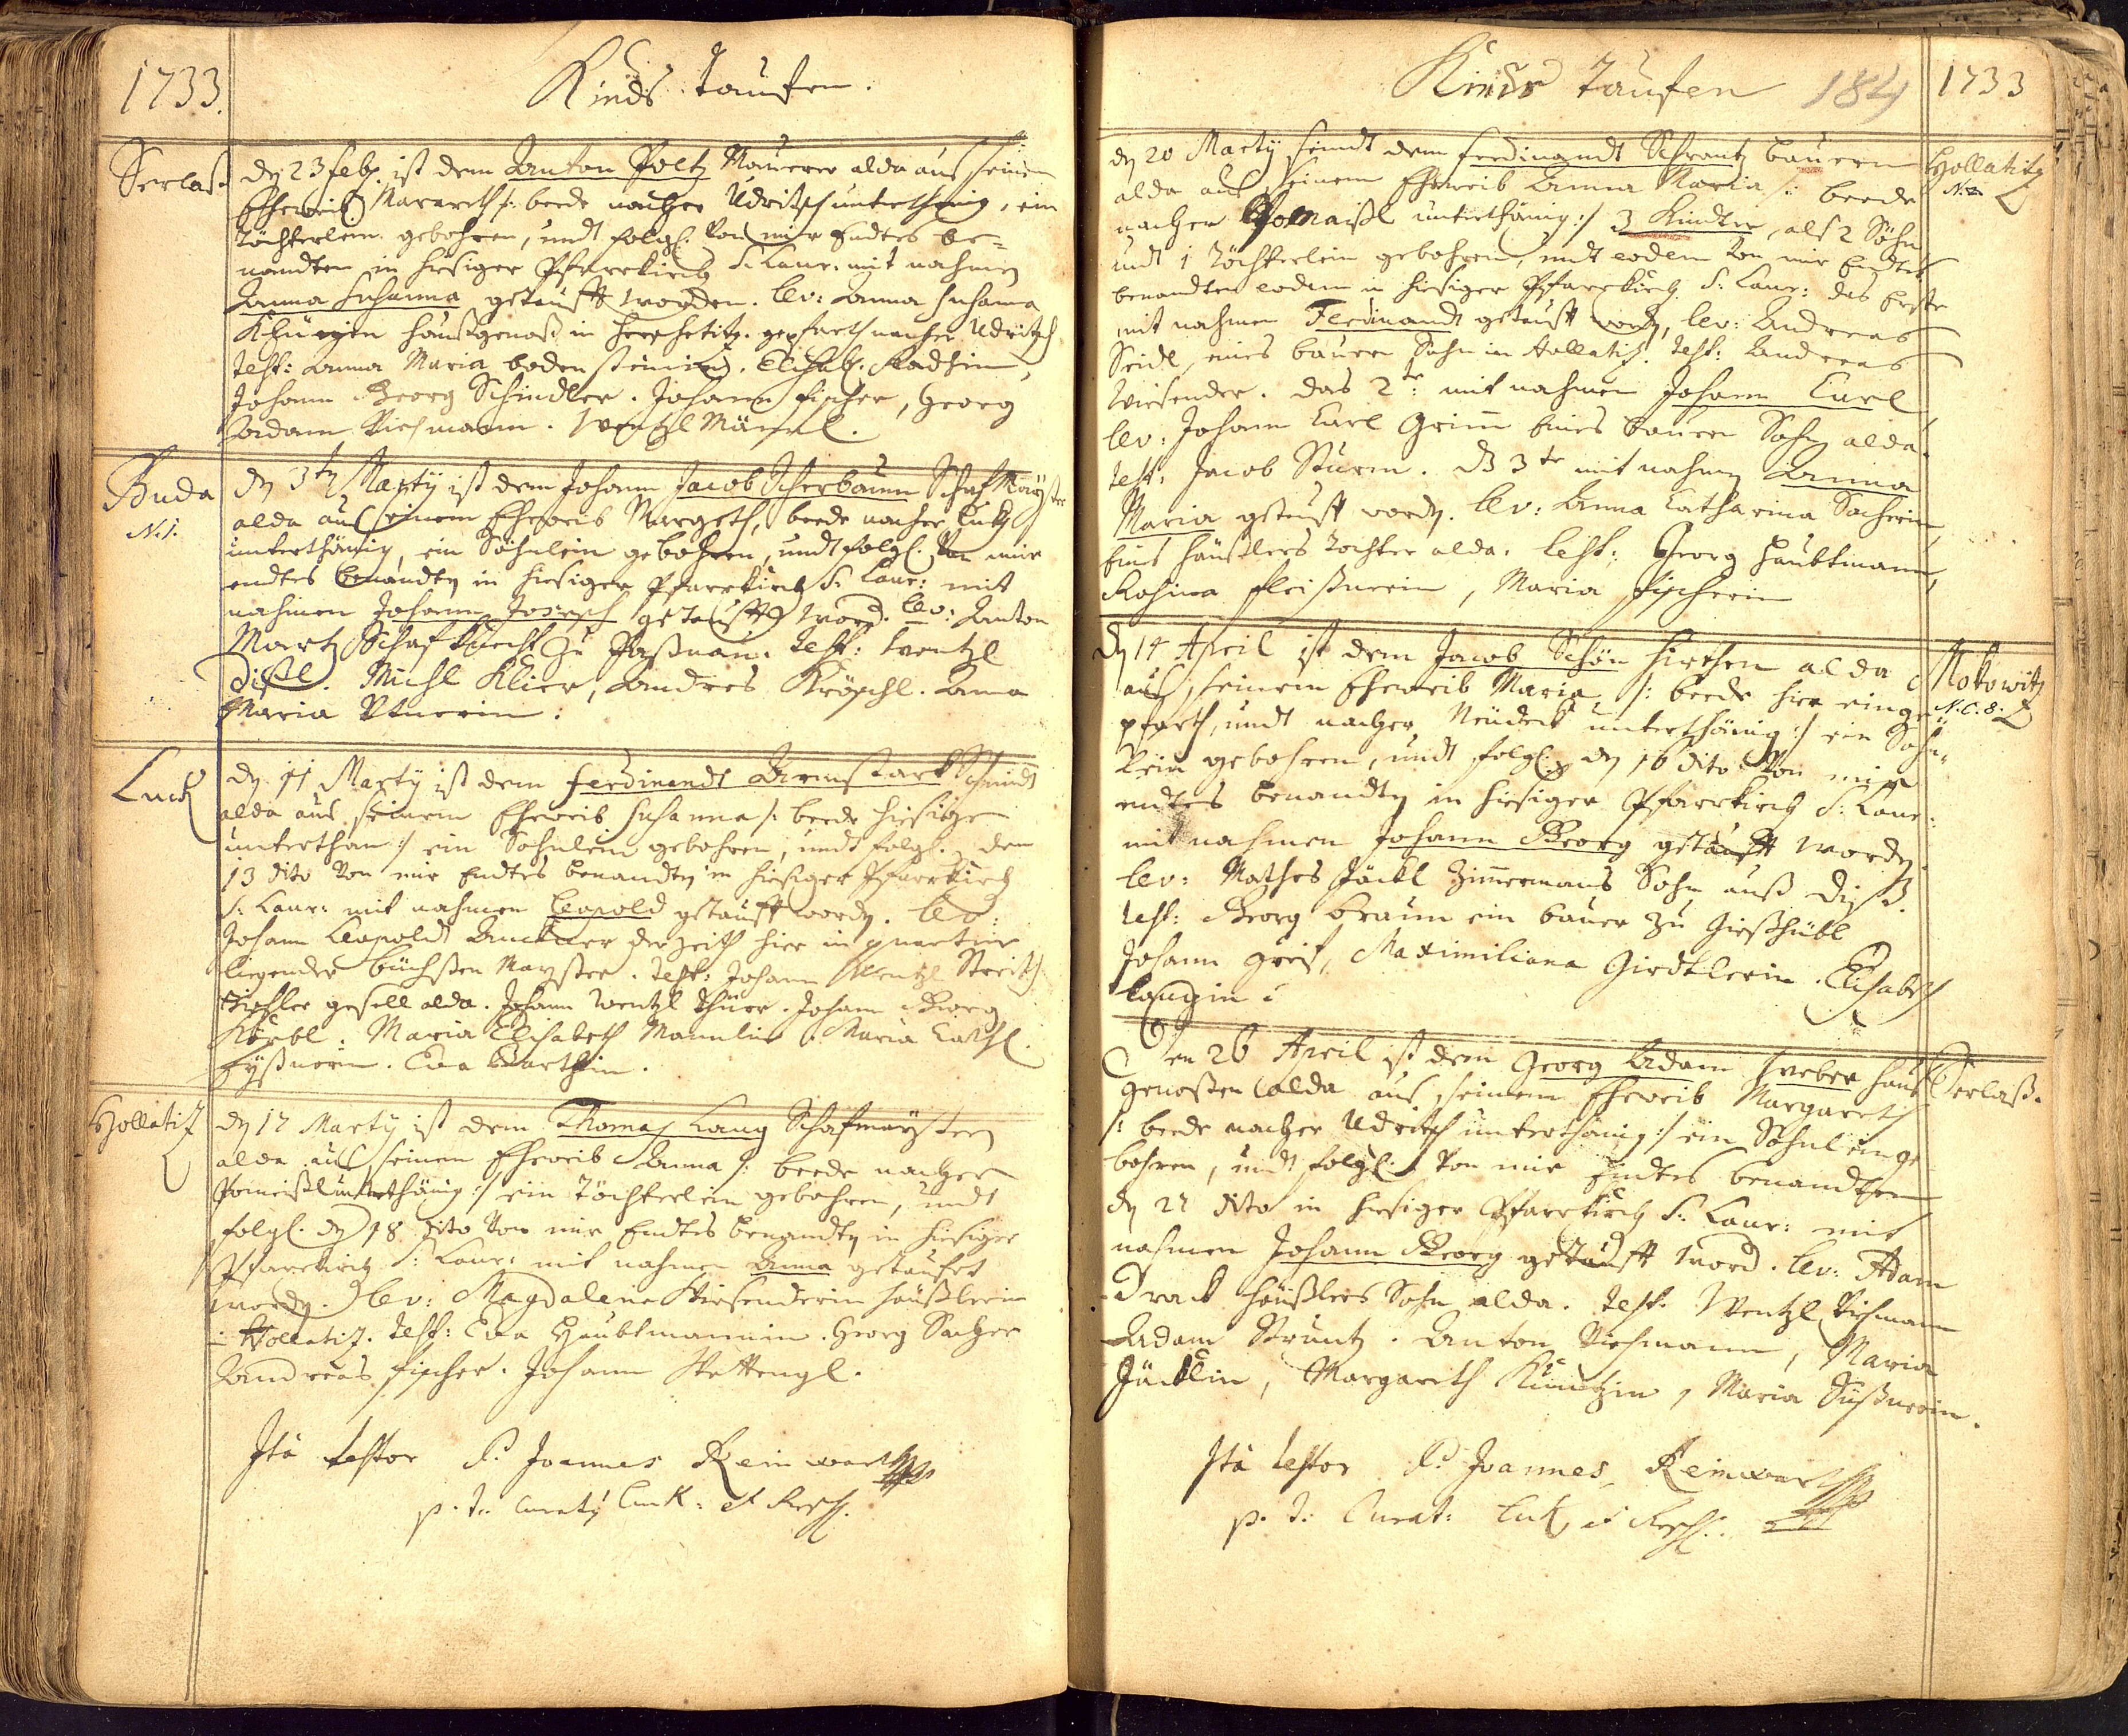 1733.
Kinds Tauffen.
Serlas
dℯ 23 Feb. ist dem Anton Poltz Maurer alda aus seinem
Eheweib Margreth /: beede nacher Udritsch unterthänig, ein
Töchterlein gebohren, undt folgl. von mir Endtes be=
nandten in hiesiger Pfarrkirch S: Laur: mit nahmen
Anna Susanna getaufft worden. Lev: Anna Susanna
haußgenoß in gepfarth nacher Udritsch
Test: Anna Maria bodensteinin. Elisab.
Johann Georg Schindler. Johann Fischer, Georg
Adam Richmann. Wentzl
Buda
N. 1.
dℯ 3tℯ Marty ist dem Johann Jacob Scherbaum Schafmayster
alda aus seinem Eheweib Margreth, beede nacher Luck
unterthänig, ein Söhnlein gebohren, undt folgl. von mir
endtes benandtℯ in hiesiger Pfarrkirch S: Laur: mit
nahmen Johann Joseph getaufft word. Lev: Anton
Martz Schafknecht zu Paßnau. Test: Wentzl
Dißl. Michl Klier, Andres Kröschl. Anna
Maria
Luck
dℯ 11 Marty ist dem Ferdinandt Armstark Schmidt
alda aus seinem Eheweib Susanna /: beede hiesige
unterthan :/ ein Sohnlein gebohren, undt folgl. dem
13 dito von mir Endtes benandtℯ in hiesiger Pfarrkirch
S: Laur: mit nahmen Leopold getaufft wordℯ. Lev:
Johann Leopoldt der Zeith hier in quartier
liegender büchsen Mayster. Test: Johann Wentzl Streith
Tischler gesell alda. Johann Wentzl Johann Georg
Körbl. Maria Elisabeth Maria Cath.
Eva Barthin.
Hollatitz
dℯ 17 Marty ist dem Thomas Lang Schafmaystern
alda aus seinem Eheweib Anna /: beede nacher
Pomeißl unterthänig :/ ein Töchterlein gebohren, undt
folgl. dℯ 18 dito von mir Endtes benandtℯ in hiesiger
Pfarrkirch S: Laur: mit nahmen Anna getaufet
wordℯ. Lev: Magdalena Wiesenderin häußlerin
in Hollatitz. Test: Eva Haubtmannin. Georg Sacher
Andreas Fischer. Johann Stettengl.
Ita testor P. Joannes Reinwarth
p. t. Curatg Luck: et Resch.
Kinds Tauffen
184
1733
Hollatitz
N.
dℯ 20 Marty seindt dem Ferdinandt Schrantz bauern
alda aus seinem Eheweib Anna Maria /: beede
nacher Pomaißl unterthänig :/ 3 Kinder, als 2 Söhn
undt 1 Töchterlein gebohren, undt eodem von mir Endtes
benandten eodem in hiesiger Pfarrkirch S: Laur: das Erste
mit nahmen Ferdinandt getaufft wordℯ, Lev: Andreas
Seidl, eines bauern Sohn in Hollatitz. Test: Andreas
Wiesender. das 2te mit nahmen Johann Carl
Lev: Johann Carl Grim Eines bauern Sohn alda.
Test: Jacob Sturm. Das 3te mit nahmℯ Anna
Maria getaufft wordℯ. Lev: Anna Catharina Sacherin
Eins häußlers Tochter alda. Test: Georg Haubtmann,
Rosina Fleißnerin, Maria Fischerin
Mokowitz
N. C. 8.
dℯ 14 April ist dem Jacob Schön Hierthen alda
aus seinem Eheweib Maria, /: beede hier einge=
pfarth, undt nacher Neudeck unterthänig :/ ein Söhn=
lein gebohren, undt folgl. dℯ 16 dito von mir
endtes benandtℯ in hiesiger Pfarrkirch S: Laur:
mit nahmen Johann Georg getaufft wordℯ.
Lev: Mathes Jäckl Zimmermans Sohn auß
Test: Georg Braun ein bauer zu Gießhübl
Johann Greiß, Maximiliana Girdtlerin. Elisabeth
Langin:
Serlaß.
Den 26 April ist dem Georg Adam Weber hauß=
genoßen alda aus seinem Eheweib Margareth
/: beede nacher Udritsch unterthänig :/ ein Söhnlein ge
bohren, undt folgl. von mir Endtes benandten
dℯ 27 dito in hiesiger Pfarrkirch S: Laur: mit
nahmen Johann Georg getaufft word. Lev: Adam
Drack häußlers Sohn alda. Test. Wentzl Richmann
Adam Stuntz. Anton Richmann, Maria
Jäcklin, Margareth Kuntzin, Maria Süßnerin.
Ita testor P. Joannes Reinwarth
p. t. Curat: Luck, et Resch: